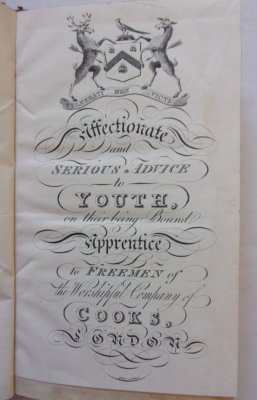 VULNERATI NON VICTI
Affectionate
and
SERIOUS ADVICE
to
YOUTH,
on their being Bound
Apprentice
to FREEMEN of
the Worshipful Company of
COOKS,
LONDON